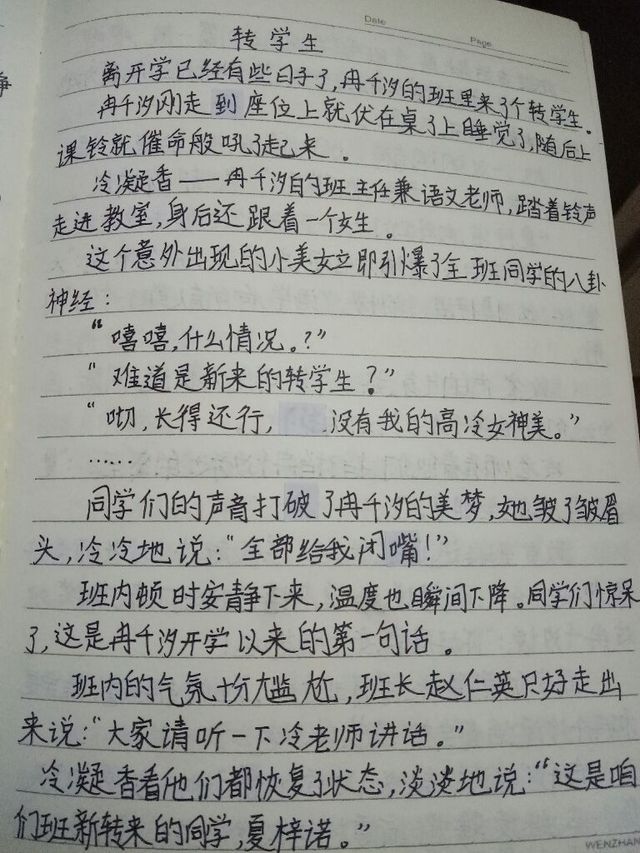 Date
Page
转学生
离开学已经有些日子了,冉千汐的班里来了个转学生。
冉千汐刚走到座位上就伏在桌子上睡觉了,随后上
课铃就催命般吼了起来。
冷凝香——冉千汐的班主任兼语文老师,踏着铃声
走进教室,身后还跟着一个女生。
这个意外出现的小美女立即引爆了全班同学的八卦
神经:
“嘻嘻,什么情况。?”
“难道是新来的转学生?”
“呦,长得还行, 没有我的高冷女神美。”
……
同学们的声音打破了冉千汐的美梦,她皱了皱眉
头,冷冷地说:“全部给我闭嘴!”
班内顿时安静下来,温度也瞬间下降。同学们惊呆
了,这是冉千汐开学以来的第一句话。
班内的气氛十分尴尬,班长赵仁英只好走出
来说:“大家请听一下冷老师讲话。”
冷凝香看他们都恢复了状态,淡淡地说:“这是咱
们班新转来的同学,夏梓诺。”
WENZHAN